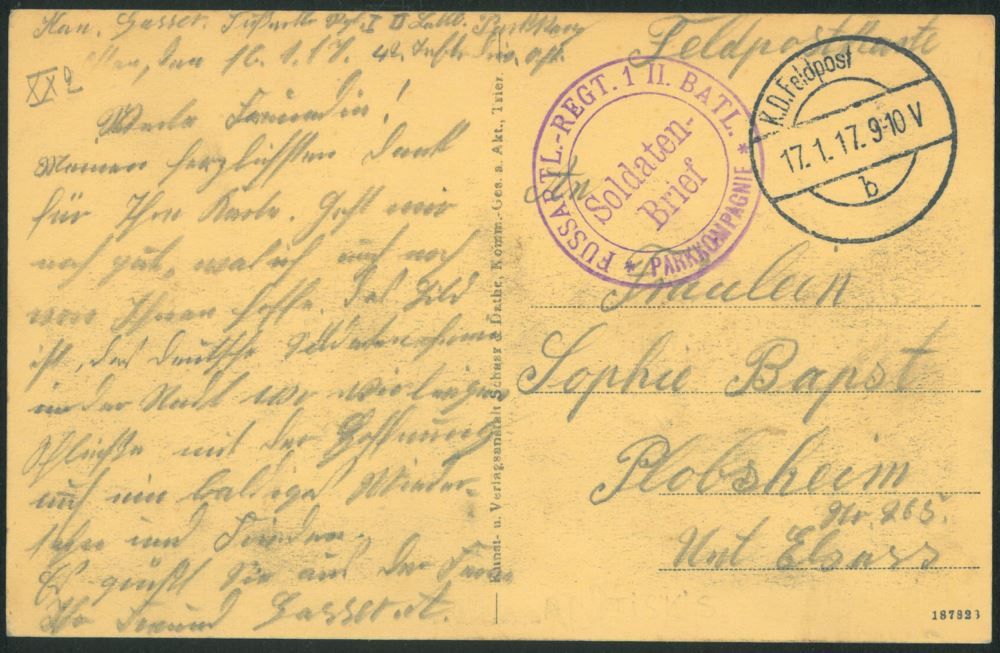 Kan. Gasser. Fußartl. Rgt. I II Batl. Parkkomp
den 16. 1. 17. 42.
XX2
Werte Freundin!
Meinen herzlichsten Dank
für Ihre Karte. Geht mir
noch gut, was ich auch noch
von Ihnen hoffe. Das Bild
ist, das deutsche Soldatenheim
in der Stadt wo wir liegen
Schließe mit der Hoffnung
auf ein baldiges Wieder-
sehn und Frieden.
Es grüßt Sie aus der Ferne
Ihr Freund Gasser. A.
Kunst- u. Verlagsanstalt Schaar & Dathe, Komm.-Ges. a. Akt., Trier.
Feldpostkarte
FUSSARTL.-REGT. 1 II. BATL.
* PARKKOMPAGNIE *
Soldaten-
Brief
K.D.Feldpost
17.1.17.9-10V
b
An
Fräulein
Sophie Bapst
Plobsheim
Nr. 265.
Unt Elsass
187823